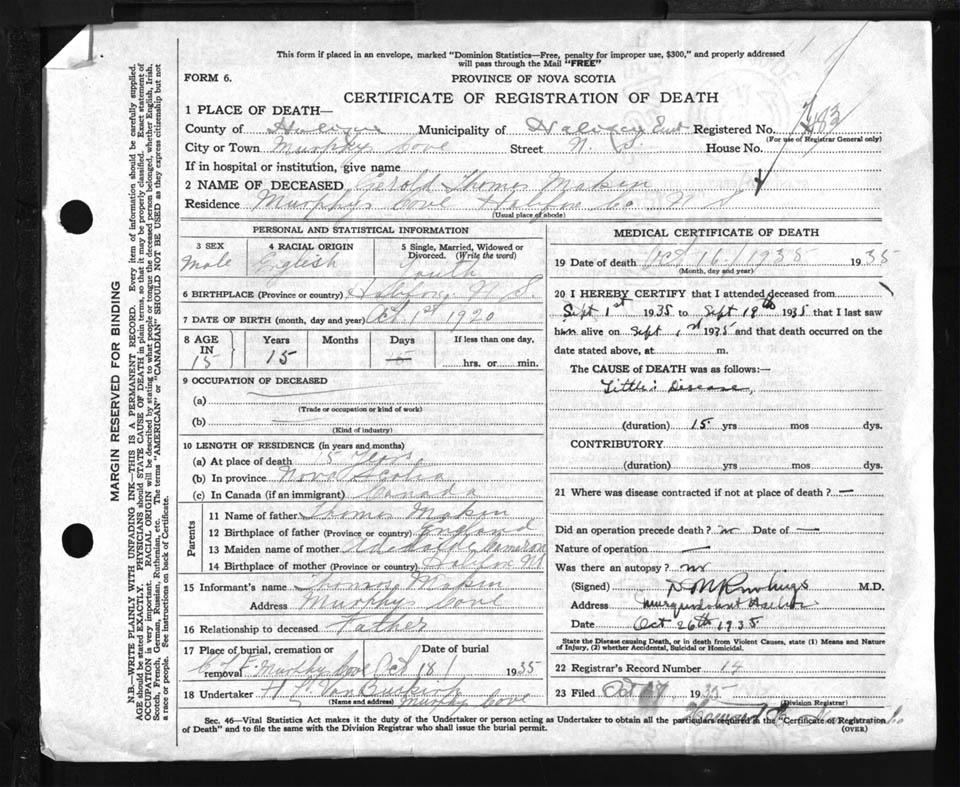 This form if placed in an envelope, marked "Dominion Statistics—Free, penalty for improper use, $300," and properly addressed
will pass through the Mail "FREE"
FORM 6.
PROVINCE OF NOVA SCOTIA
CERTIFICATE OF REGISTRATION OF DEATH
1 PLACE OF DEATH—
County of Halifax Municipality of Halifax East Registered No.
(For use of Registrar General only)
City or Town Murphy Cove Street N. S. House No.
If in hospital or institution, give name
2 NAME OF DECEASED Gerold Thomas Makin
Residence Murphys Cove Halifax Co N S
(Usual place of abode)
PERSONAL AND STATISTICAL INFORMATION
3 SEX
Male
4 RACIAL ORIGIN
English
5 Single, Married, Widowed or
Divorced. (Write the word)
Youth
6 BIRTHPLACE (Province or country) Halifax N S.
7 DATE OF BIRTH (month, day and year) Oct. 1st 1920
8 AGE
IN
15
Years
15
Months
Days
If less than one day,
hrs. or min.
9 OCCUPATION OF DECEASED
(a)
(Trade or occupation or kind of work)
(b)
(Kind of industry)
10 LENGTH OF RESIDENCE (in years and months)
(a) At place of death 5 Years
(b) In province Nova Scotia
(c) In Canada (if an immigrant) Canada
Parents
11 Name of father Thomas Makin
12 Birthplace of father (Province or country) England
13 Maiden name of mother Adelaide Cameron
14 Birthplace of mother (Province or country) Halifax
15 Informant's name Thomas Makin
Address Murphys Cove
16 Relationship to deceased Father
17 Place of burial, cremation or
removal
Date of burial
Murphy Cove Oct 18 1935
18 Undertaker
(Name and address) Murphy Cove
MEDICAL CERTIFICATE OF DEATH
19 Date of death Oct 16 / 1935 1935
(Month, day and year)
20 I HEREBY CERTIFY that I attended deceased from
Sept 1st 1935 to Sept 19th 1935 that I last saw
him alive on Sept 1st 1935 and that death occurred on
date stated above, at m.
The CAUSE of DEATH was as follows:—
Little's Disease
(duration) 15 yrs mos dys.
CONTRIBUTORY
(duration) yrs mos dys.
21 Where was disease contracted if not at place of death? —
Did an operation precede death? no Date of —
Nature of operation —
Was there an autopsy? no
(Signed) M.D.
Address Musquodoboit Harbor
Date Oct 26th 1935
State the Disease causing Death, or in death from Violent Causes, state (1) Means and Nature
of Injury, (2) whether Accidental, Suicidal or Homicidal.
22 Registrar's Record Number 14
23 Filed Oct 17 1935
(Division Registrar)
Sec. 46—Vital Statistics Act makes it the duty of the Undertaker or person acting as Undertaker to obtain all the particulars required in the "Certificate of Registration
of Death" and to file the same with the Division Registrar who shall issue the burial permit.
(OVER)
MARGIN RESERVED FOR BINDING
N.B.—WRITE PLAINLY WITH UNFADING INK—THIS IS A PERMANENT RECORD. Every item of information should be carefully supplied.
AGE should be stated EXACTLY. PHYSICIANS should STATE CAUSE OF DEATH in plain terms, so that it may be properly classified. Exact statement of
OCCUPATION is very important. RACIAL ORIGIN will be described by stating to what people or tongue the deceased person belonged, whether English, Irish,
Scotch, French, German, Russian, Ruthenian, etc. The terms "AMERICAN" or "CANADIAN" SHOULD NOT BE USED as they express citizenship but not
a race or people. See instructions on back of Certificate.